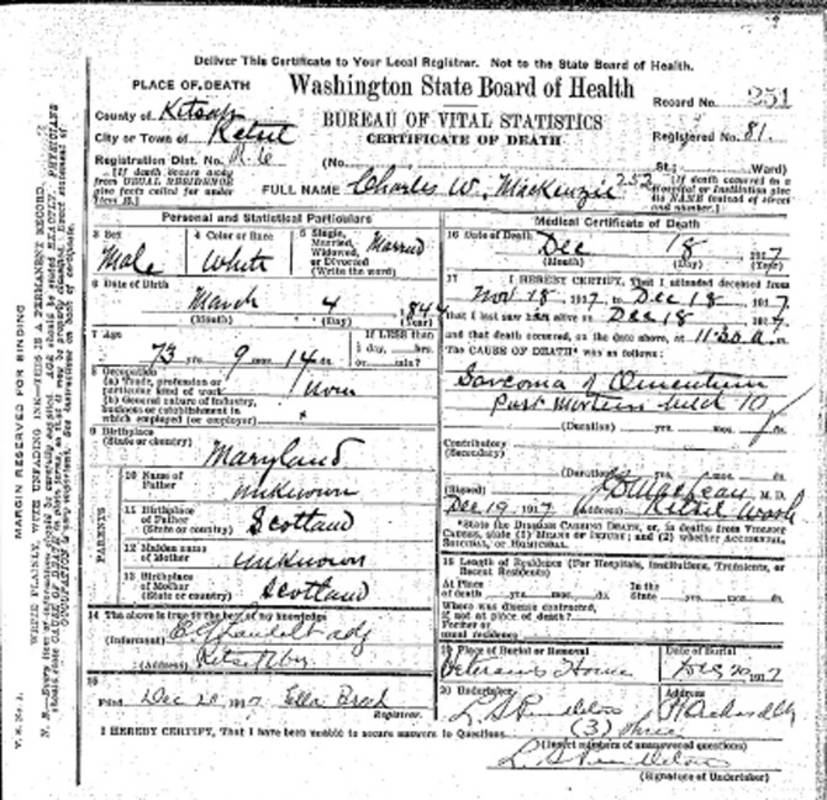 Deliver This Certificate to Your Local Registrar. Not to the State Board of Health.
PLACE OF DEATH
Washington State Board of Health
Record No. 251
County of Kitsap
BUREAU OF VITAL STATISTICS
City or Town of Retsil
CERTIFICATE OF DEATH
Registered No. 81.
Registration Dist. No. R-6
(No. St.; Ward)
[If death occurs away from USUAL RESIDENCE give facts called for under Item 18.]
FULL NAME Charles W. Mackenzie 252
[If death occurred in a Hospital or Institution give its NAME instead of street and number.]
Personal and Statistical Particulars
3 Sex
Male
4 Color or Race
White
5 Single, Married, Widowed, or Divorced (Write the word)
Married
6 Date of Birth
March 4 1844
(Month) (Day) (Year)
7 Age
73 yrs. 9 mos. 14 ds.
If LESS than 1 day, hrs. or min.?
8 Occupation
(a) Trade, profession or particular kind of work
(b) General nature of industry, business or establishment in which employed (or employer)
9 Birthplace (State or country)
Maryland
PARENTS
10 Name of Father
unknown
11 Birthplace of Father (State or country)
Scotland
12 Maiden name of Mother
unknown
13 Birthplace of Mother (State or country)
Scotland
14 The above is true to the best of my knowledge
(Informant) adj
(Address)
15
Filed Dec 20 1917 Ella
Registrar.
Medical Certificate of Death
16 Date of Death
Dec 18 1917
(Month) (Day) (Year)
17 I HEREBY CERTIFY, That I attended deceased from
Nov 18 1917 to Dec 18 1917
that I last saw him alive on Dec 18 1917
and that death occurred, on the date above, at 11:30 a.m.
The CAUSE OF DEATH* was as follows:
Sarcoma of Omentum
Post Mortem held
(Duration) yrs. mos. ds.
Contributory (Secondary)
(Duration) yrs. mos. ds.
(Signed) M. D.
Dec 19 1917 (Address) Retsil Wash
*State the DISEASE CAUSING DEATH, or, in deaths from VIOLENT CAUSES, state (1) MEANS OF INJURY; and (2) whether ACCIDENTAL, SUICIDAL, or HOMICIDAL.
18 Length of Residence (For Hospitals, Institutions, Transients, or Recent Residents)
At Place of death yrs. mos. ds. In the State yrs. mos. ds.
Where was disease contracted, if not at place of death?
Former or usual residence
19 Place of Burial or Removal
Veterans Home
Date of Burial
Dec 20 1917
20 Undertaker
Address
I HEREBY CERTIFY, That I have been unable to secure answers to Questions (3) three
(Insert numbers of unanswered questions)
(Signature of Undertaker)
MARGIN RESERVED FOR BINDING
WRITE PLAINLY, WITH UNFADING INK—THIS IS A PERMANENT RECORD.
N. B.—Every item of information should be carefully supplied. AGE should be stated EXACTLY. PHYSICIANS should state CAUSE OF DEATH in plain terms, so that it may be properly classified. Exact statement of OCCUPATION is very important. See instructions on back of certificate.
V. S. No. 1.